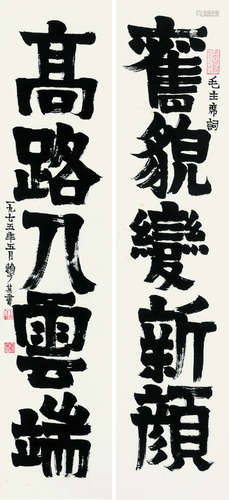 舊貌變新顏
毛主席詞
髙路入雲端
一九七五年五月賴少其書